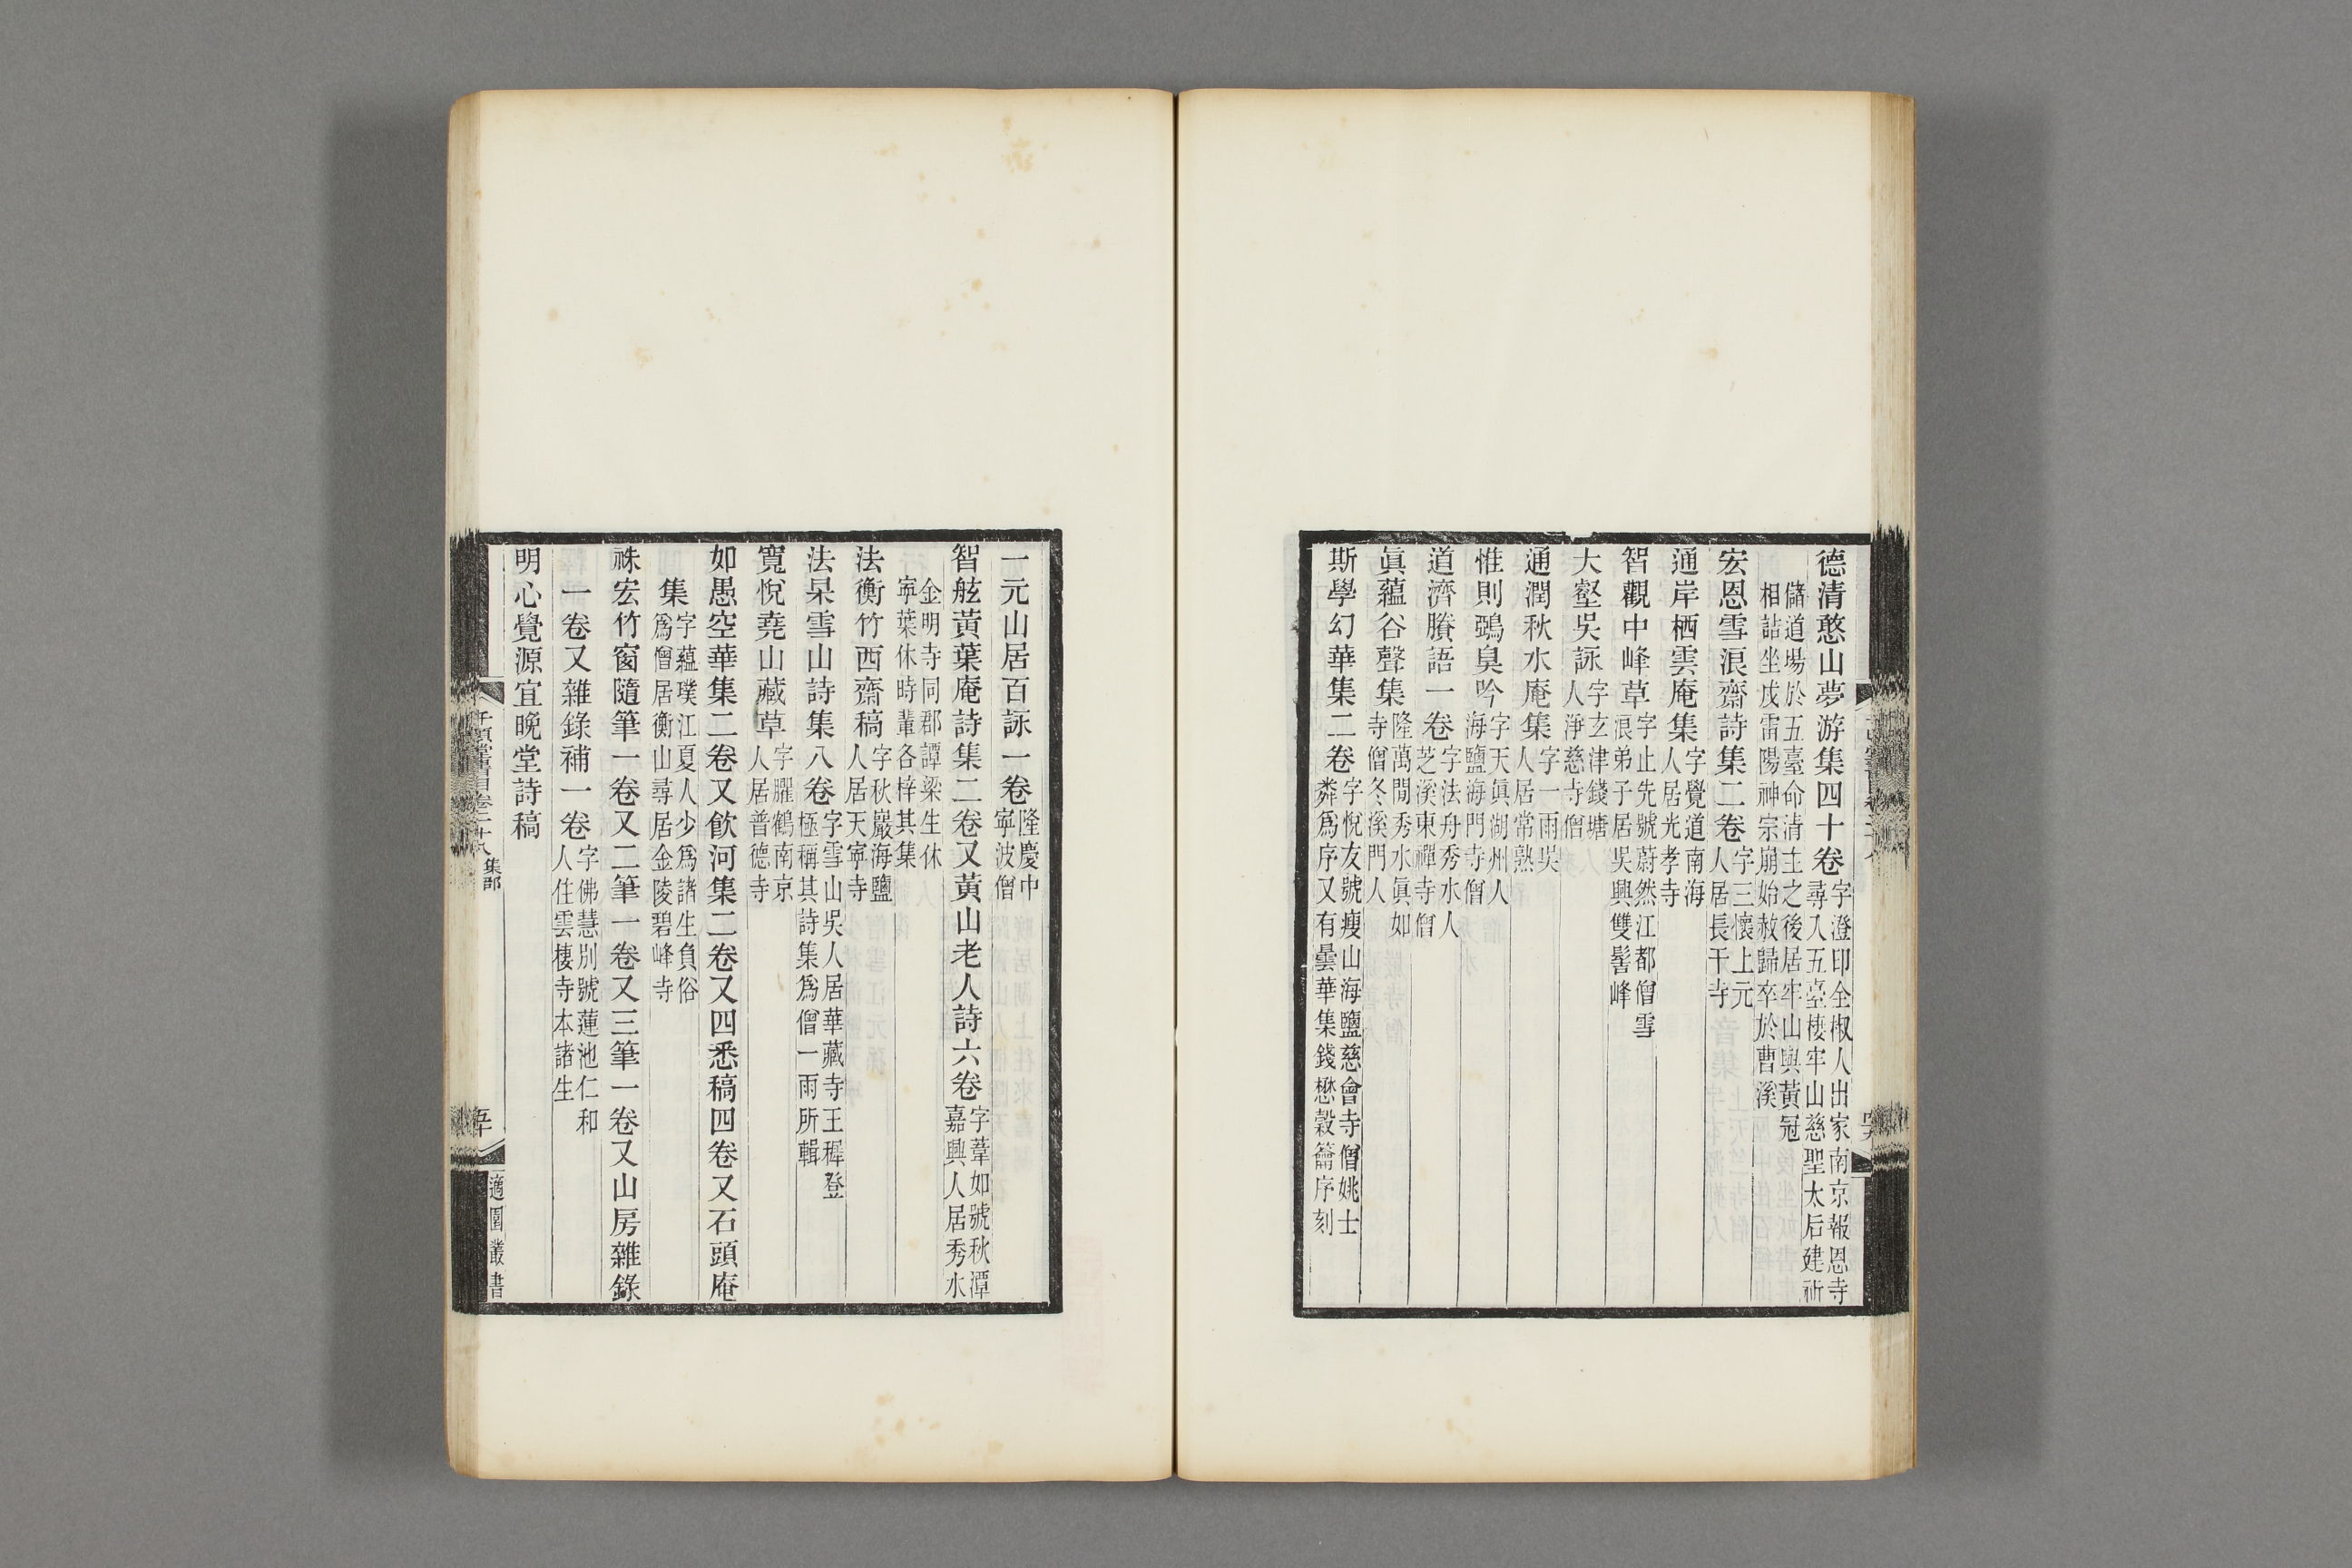 德清憨山夢游集四十卷字澄印全椒人出家南京報恩寺尋入五臺棲牢山慈聖太后建祈
儲道場於五臺命清主之後居牢山與黃冠相詰坐戍雷陽神宗崩始赦歸卒於曹溪
宏恩雪浪齋詩集二卷字三懷上元人居長干寺
通岸栖雲庵集字覺道南海人居光孝寺
智觀中峰草字止先號蔚然江都僧雪浪弟子居吳興雙髻峰
大壑吳詠字玄津錢塘人淨慈寺僧
通潤秋水庵集字一雨吳人居常熟
惟則鵶臭吟字天眞湖州人海鹽海門寺僧
道濟賸語一卷字法舟秀水人芝溪東禪寺僧
眞蘊谷聲集隆萬間秀水眞如寺僧冬溪門人
斯學幻華集二卷字悅友號瘦山海鹽慈會寺僧姚士粦爲序又有曇華集錢懋穀籥序刻
一元山居百詠一卷隆慶中寧波僧
智舷黃葉庵詩集二卷又黃山老人詩六卷字葦如號秋潭嘉興人居秀水
金明寺同郡譚梁生休寧葉休時輩各梓其集
法衡竹西齋稿字秋巖海鹽人居天寧寺
法杲雪山詩集八卷字雪山吳人居華藏寺王穉登極稱其詩集爲僧一雨所輯
寬悅堯山藏草字臞鶴南京人居普德寺
如愚空華集二卷又飮河集二卷又四悉稿四卷又石頭庵
集字蘊璞江夏人少爲諸生負俗爲僧居衡山尋居金陵碧峰寺
袾宏竹窗隨筆一卷又二筆一卷又三筆一卷又山房雜錄
一卷又雜錄補一卷字佛慧別號蓮池仁和人住雲棲寺本諸生
明心覺源宜晚堂詩稿
千頃堂書目卷二十八 集部
五十
適園叢書